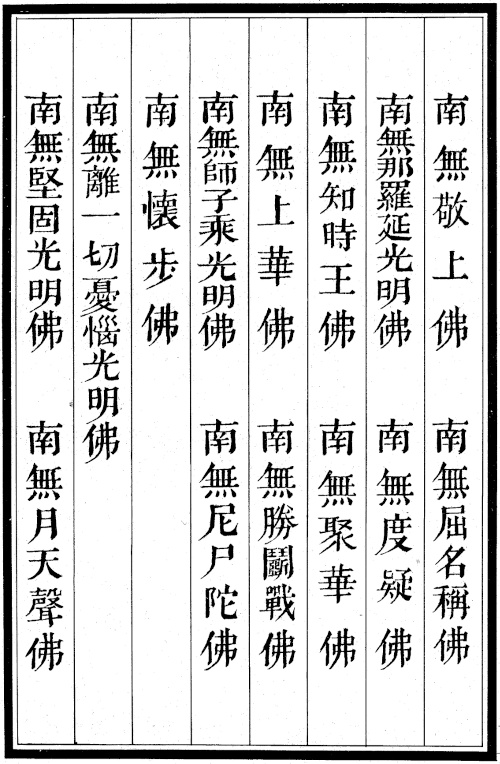 南無敬上佛　南無屈名稱佛
南無那羅延光明佛　南無度疑佛
南無知時王佛　南無聚華佛
南無上華佛　南無勝鬬戰佛
南無師子乘光明佛　南無尼尸陀佛
南無懷步佛
南無離一切憂惱光明佛
南無堅固光明佛　南無月天聲佛